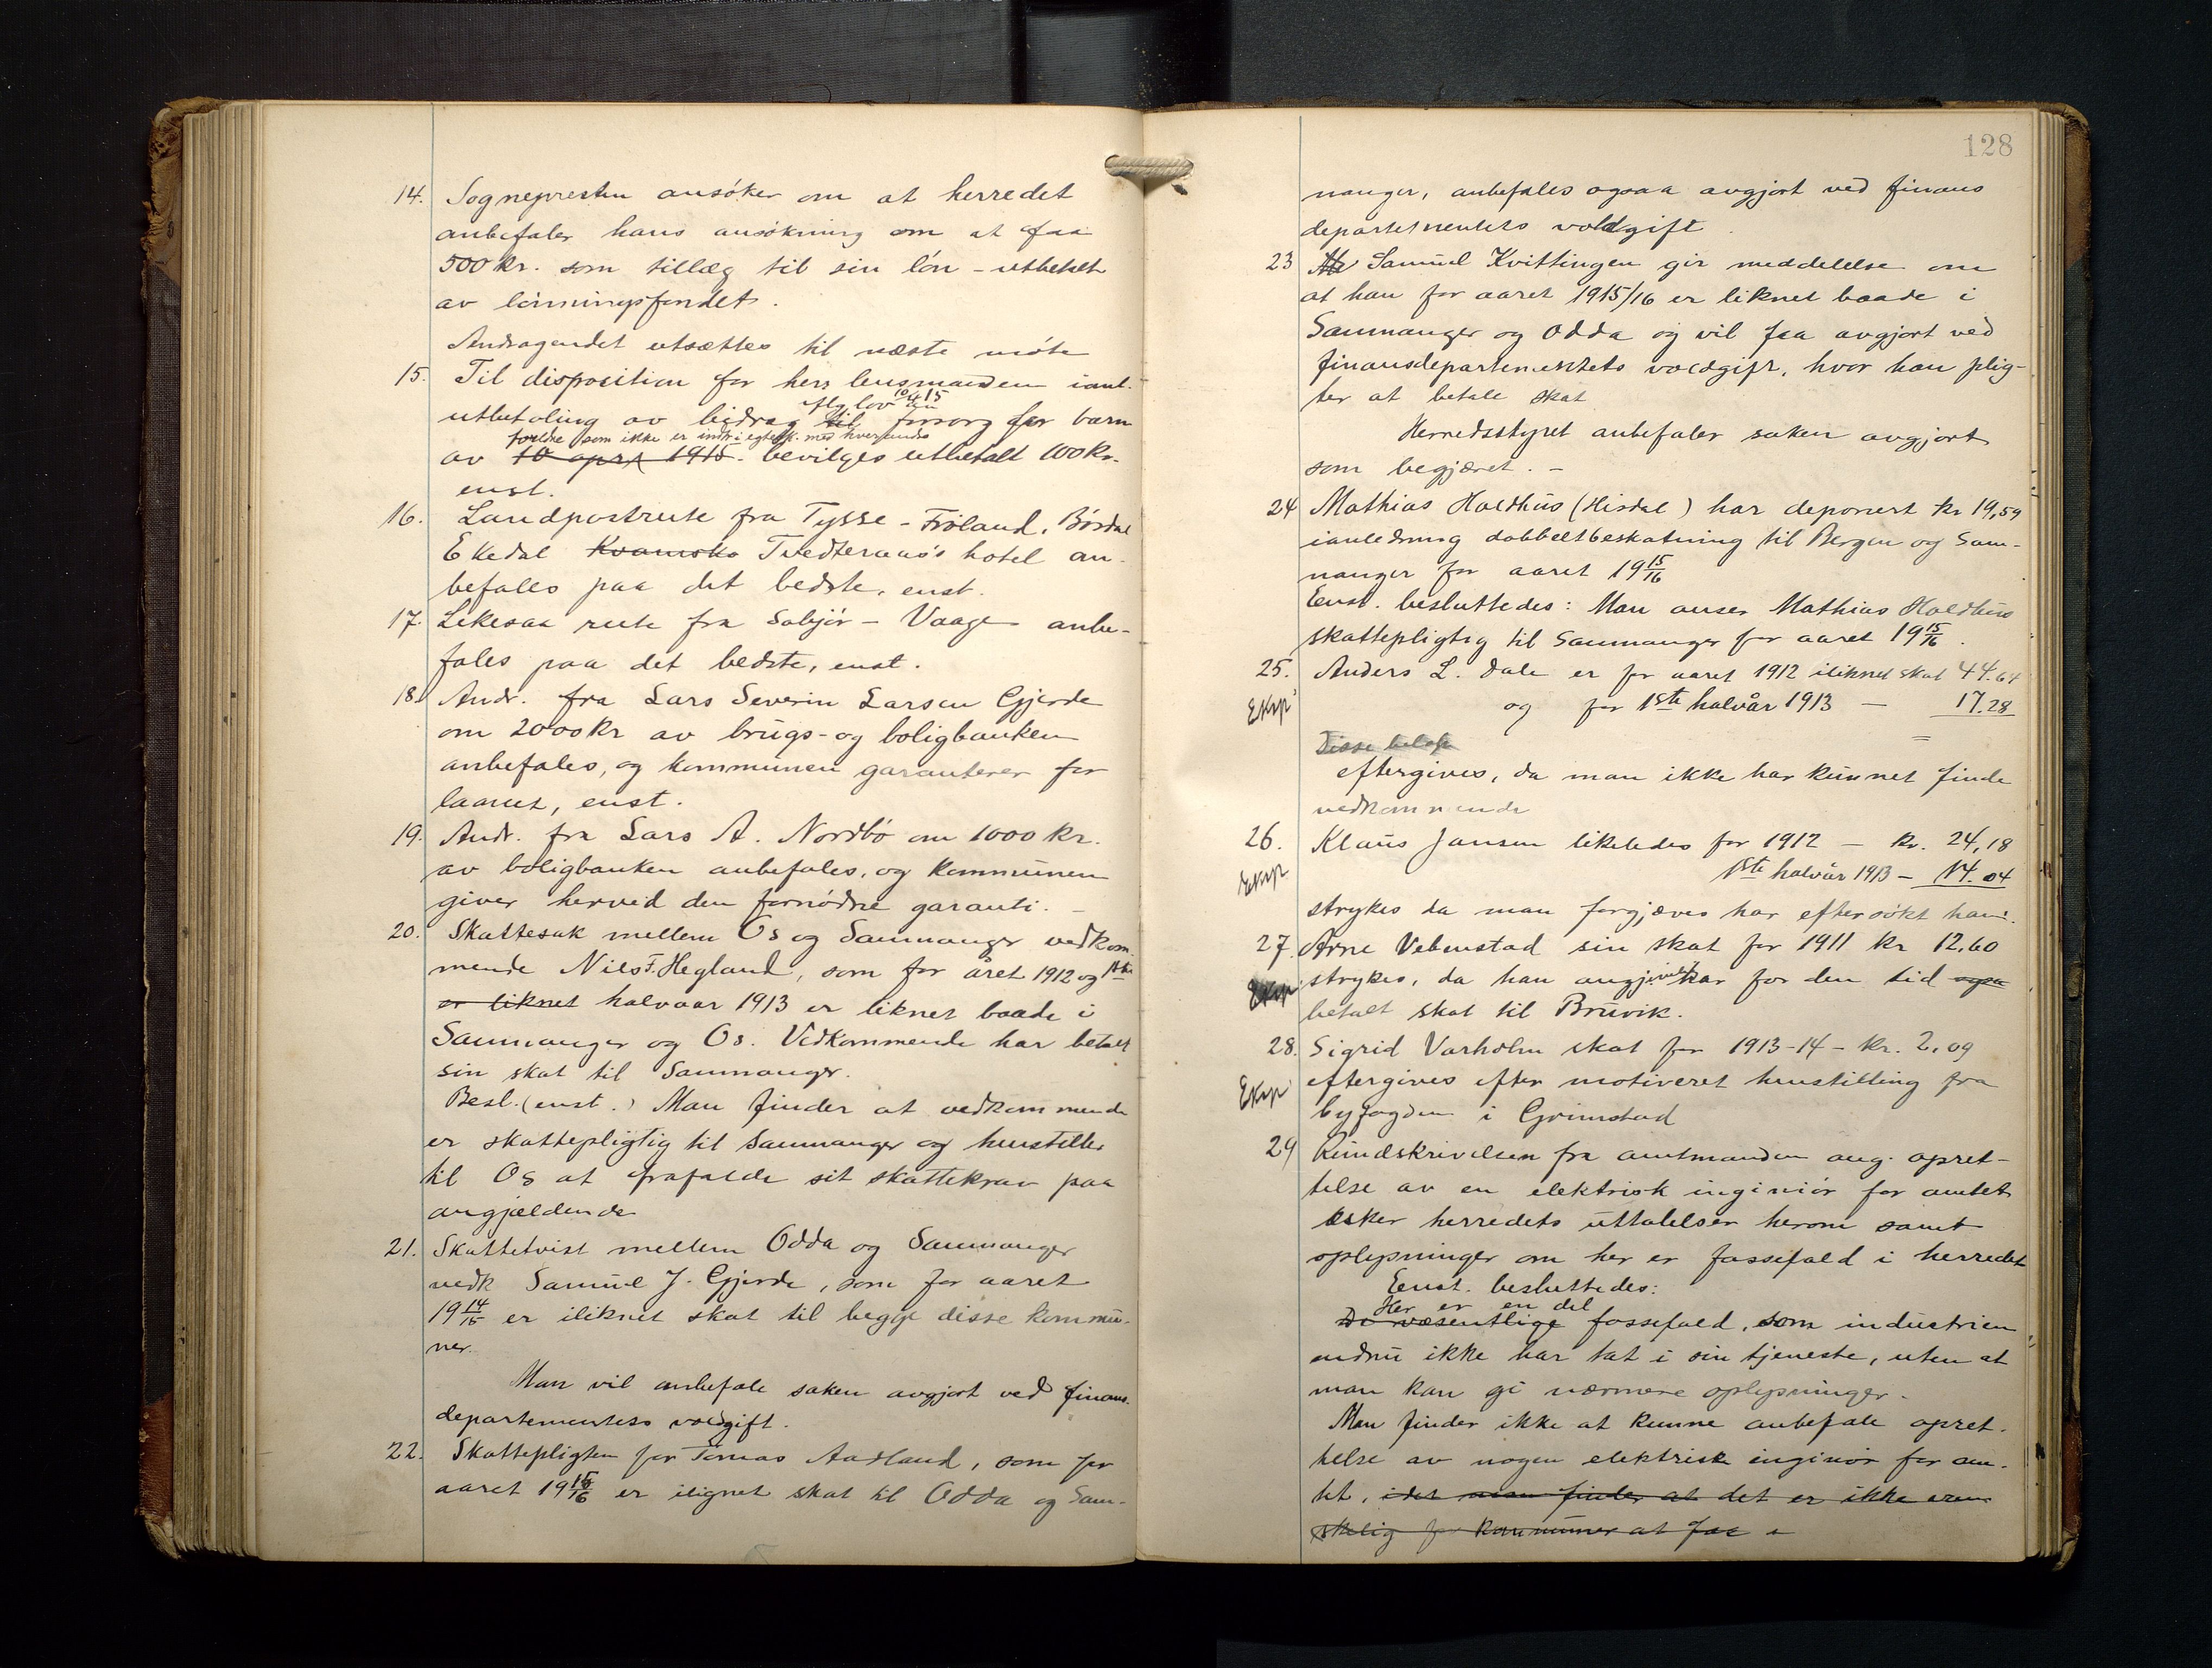 14. Sognepresten ansøker om at herredet
anbefaler hans ansøkning om at faa
500 kr. som tillæg til sin løn - utbetalt
av lønningsfondet.
Andragendet utsættes til næste møte
15. Til disposition for herr lensmanden ianl.
iflg lov den 10/4 15
utbetaling av bidrag til forsorg for barn
foreldre som ikke er indtr i egtesk. med hverandre
av 10 april 1915. bevilges utbetalt 100 kr.
enst.
16. Landpostrute fra Tysse - Frøland, Børdal
Ekedal Kvamsko Tvedteraas's hotel an-
befales paa det bedste, enst.
17. Likesaa rute fra Solsjør - Vaage anbe-
fales paa det bedste, enst.
18. Andr. fra Lars Severin Larsen Gjerde
om 2000 kr av brugs- og boligbanken
anbefales, og kommunen garanterer for
laanet, enst.
19. Andr. fra Lars A. Nordbø om 1000 kr.
av boligbanken anbefales, og kommunen
giver herved den fornødne garanti. -
20. Skattesak mellem Os og Samnanger vedkom-
mende Nils F. Hegland, som for året 1912 og 1ste
er liknet halvaar 1913 er liknet baade i
Samnanger og Os. Vedkommende har betalt
sin skat til Samnanger.
Besl. (enst.) Man finder at vedkommende
er skattepligtig til Samnanger og henstiller
til Os at frafalde sit skattekrav paa
angjældende
21. Skattetvist mellem Odda og Samnanger
vedk Samuel J. Gjerde, som for aaret
19 14/15 er iliknet skat til begge disse kommu-
ner.
Man vil anbefale saken avgjort ved finans-
departementets voldgift.
22. Skattepligten for Tomas Aadland, som for
aaret 19 15/16 er ilignet skat til Odda og Sam-
128
nanger, anbefales ogsaa avgjort ved finans
departementets voldgift.
23 Samuel Kvittingen gir meddelelse om
at han for aaret 1915/16 er liknet baade i
Samnanger og Odda og vil faa avgjort ved
finansdepartementets voldgift, hvor han plig-
ter at betale skat
Herredsstyret anbefaler saken avgjort
som begjæret. -
24 Mathias Holdhus (Hisdal) har deponert kr 19,59
ianledning dobbeltbeskatning til Bergen og Sam-
nanger for aaret 19 15/16
Enst. besluttedes: Man anser Mathias Holdhus
skattepligtig til Samnanger for aaret 19 15/16.
25. Anders L. Dale er for aaret 1912 iliknet skat 44.64
Eksp og for 1ste halvår 1913 - 17.28
Disse beløp
eftergives, da man ikke har kunnet finde
vedkommende
26. Klaus Jansen likeledes for 1912 - kr. 24,18
Eksp 1ste halvår 1913 - 14.04
strykes da man forgjæves har eftersøkt ham.
27. Arne Vebenstad sin skat for 1911 kr 12.60
Eksp. strykes, da han angivelig har for den tid ogsa
betalt skat til Bruvik.
28. Sigrid Varholm skat for 1913-14 - kr. 2,09
Eksp eftergives efter motiveret henstilling fra
byfogden i Grimstad
29 Rundskrivelsen fra amtmanden ang. opret-
telse av en elektrisk ingeniør for amtet
æsker herredets uttalelser herom samt
oplysninger om her er fossefald i herredet
Eenst. besluttedes:
Her er en del
De væsentlige fossefald, som industrien
endnu ikke har tat i sin tjeneste, uten at
man kan gi nærmere oplysninger.
Man finder ikke at kunne anbefale opret-
telse av nogen elektrisk ingeniør for am-
tet, idet man finder at det er ikke øn-
skelig for kommuner at faa